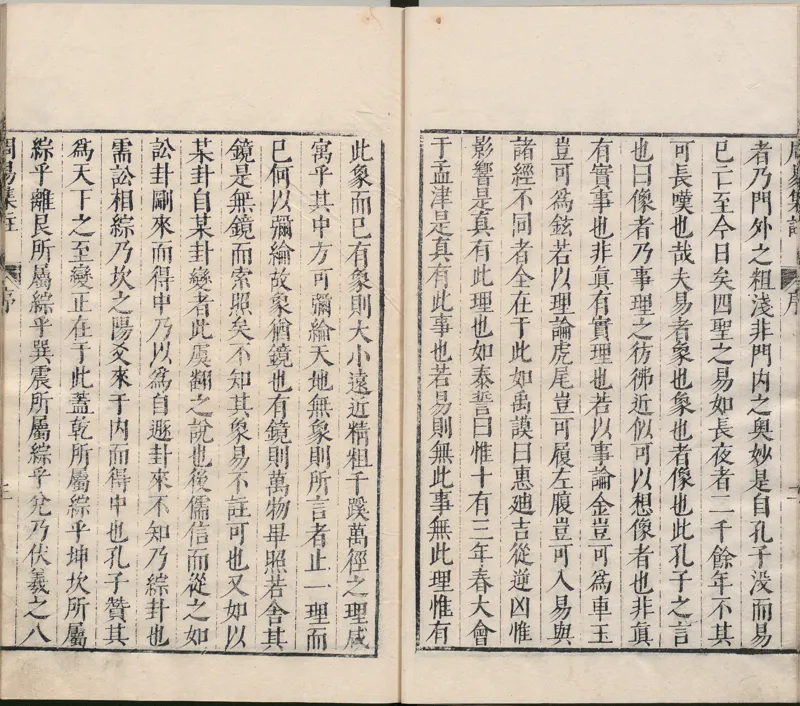 周易集註 序
者乃門外之粗淺非門內之奧妙是自孔子沒而易
已亡至今日矣四聖之易如長夜者二千餘年不其
可長嘆也哉夫易者象也象也者像也此孔子之言
也曰像者乃事理之彷彿近似可以想像者也非真
有實事也非真有實理也若以事論金豈可為車玉
豈可爲鉉若以理論虎尾豈可履左腹豈可入易與
諸經不同者全在于此如禹謨曰惠廸吉從逆凶惟
影響是真有此理也如泰誓曰惟十有三年春大會
于孟津是真有此事也若易則無此事無此理惟有
此象而已有象則大小遠近精粗千蹊萬徑之理咸
寓乎其中方可彌綸天地無象則所言者止一理而
已何以彌綸故象猶鏡也有鏡則萬物畢照若舍其
鏡是無鏡而索照矣不知其象易不註可也又如以
某卦自某卦變者此虞翻之說也後儒信而從之如
訟卦剛來而得中乃以爲自遯卦來不知乃綜卦也
需訟相綜乃坎之陽爻來于內而得中也孔子贊其
爲天下之至變正在于此蓋乾所屬綜乎坤坎所屬
綜乎離艮所屬綜乎巽震所屬綜乎兌乃伏羲之八
周易集註 序